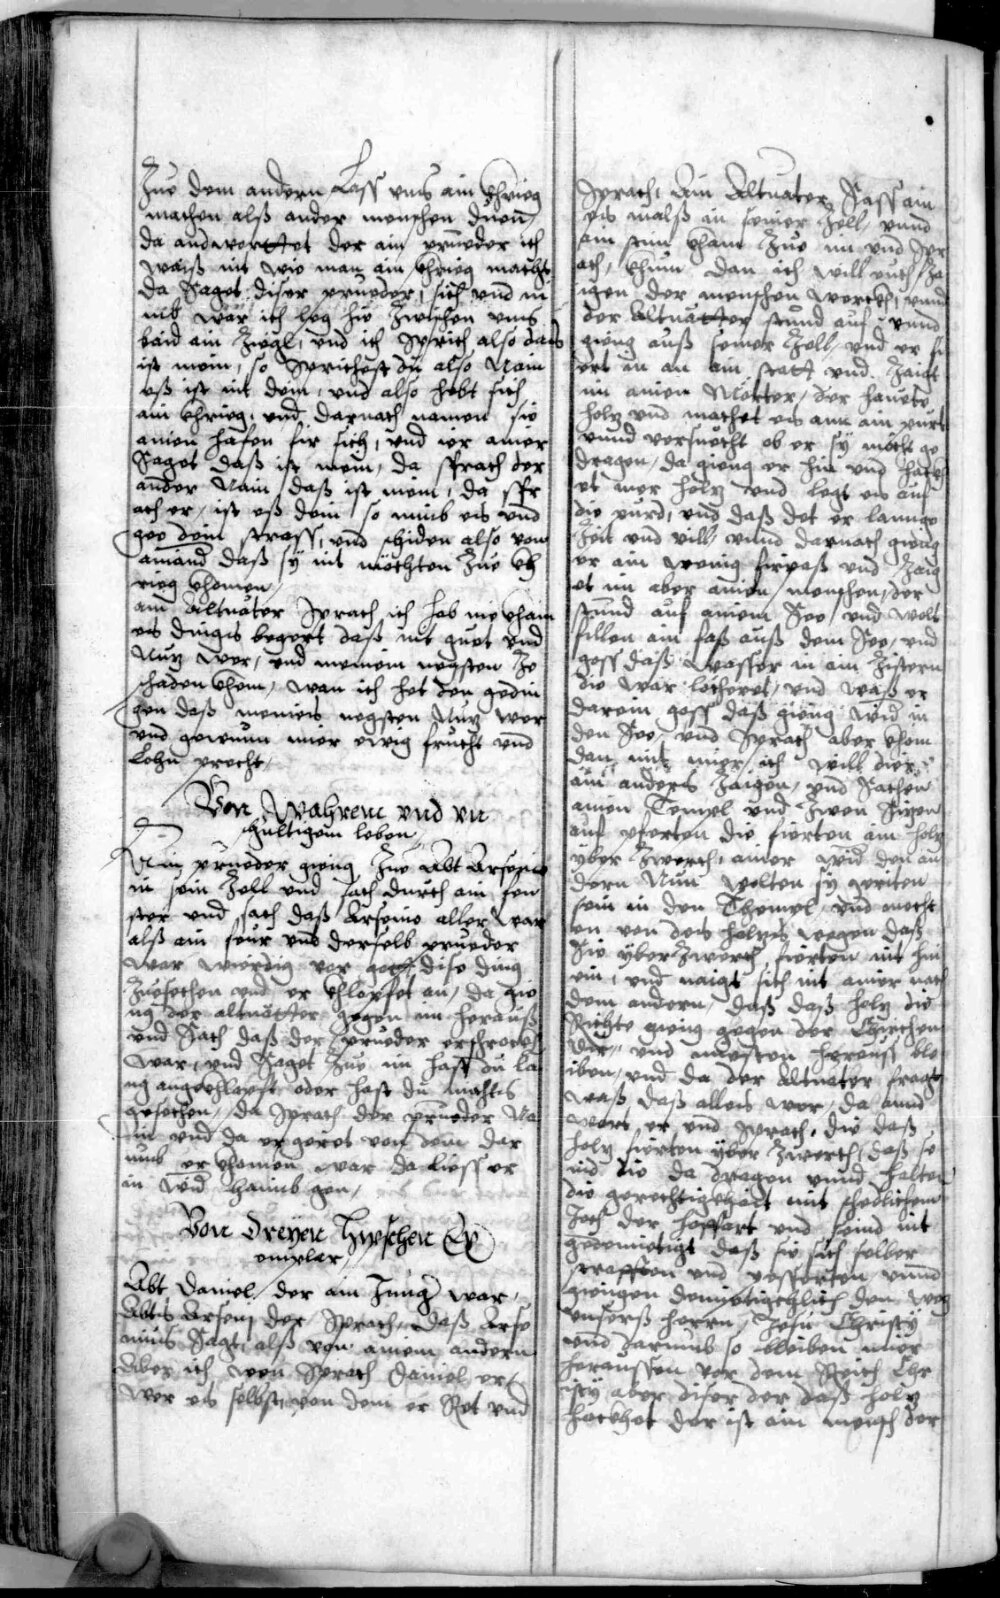 Zue dem andern Lass uns ain khrieg
machen alß ander menschen duen,
da andwerttet der ain prueder ich
waiß nit wie man ain khrieg macht
da saget diser prueder, sich und ni
mb war ich leg hie zwischen uns
baid ain ziegl, und ich sprich also das
ist mein, so sprichest du also Nain
eß ist nit dein, und also hebt sich
ain khrieg, und darnach namen sie
ainen hafen fir sich, und ier ainer
saget daß ist mein, da sprach der
ander Nain daß ist mein, da spr
ach er, ist eß dein so nimb es und
gee dein strass, und schiden also von
ainand daß sy nit mechten zue kh
rieg khomen,
ain Altuater sprach ich hab nie khain
es dinges begert daß nit guet und
Nuz wer, und meinem negsten ze
schaden khem, wan ich het den gedin
gen daß meines negsten Nuz wer
und gewunn mier ewig frucht und
Lohn precht,
Von Wahrem und un
schultigem leben,
Ain prueder gieng zue Abt Arsenio
in sein Zell und sach durch ain fen
ster und sach daß Arsenio aller war
alß ain feur und derselb prueder
war wierdig vor gott dise ding
zuesechen und er khlopfet an, da gie
ng der altuatter gegen im herauß
und sach daß der prueder erschrocken
war, und saget zue im hast du la
ng angekhlopft oder hast du nichts
gesechen, da sprach der prueder Na
in und da er geret von dem dar
umb er khomen war da liess er
in wid haimb gen,
Von dreyen Hypschen Ex
emplar,
Abt Daniel, der ain Junger war,
Abts Arsenj der sprach, daß Arse
nius sagt alß von ainem andern
Aber ich wen sprach Daniel er,
wer es selbst, von dem er Ret und
sprach, Ain Altuater sass ain
es malß in seiner Zell, und
ain stim kham zue im und spr
ach, khum dan ich will euch Za
igen der menschen werckh, und
der Altuatter stund auf, und
gieng auß seiner Zell, und er fi
ert in an ain statt und Zaigt
im ainen Morter, der hauete
holz und machet es ain purt
und versuecht ob er sy mecht ge
dragen, da gieng er hin und hackh
et mer holz und legt es auf
die purd, und daß det er lannge
Zeit und vill, und darnach gieng
er ain wenig fürpaß und Zaig
et im aber ainen menschen, der
stund auf ainem See und wolt
fillen ain faß auß dem See, und
goss daß wasser in ain Zistern
die war lecheret, und waß er
darein goss daß gieng wid in
den See, und sprach aber khom
dan mit mier ich will dier
ain anders Zaigen, und sachen
ainen Tempel und zwen sizen
auf pferten die fierten ain holz
yber zwerch, ainer wid den an
dern Nun wolten sy geriten
sein in den Thempl, und mecht
en von des holzes wegen daß
sie yberzwerch fierten nit hin
ein, und naigt sich nit ainer nach
dem andern, daß daß holz die
Richte gieng gegen der Khirchen
dier, und muesten herauß ble
iben, und da der Altuater fragt
waß daß alles wer, da annt
wort er und sprach, die daß
holz fierten yber zwerch, daß se
ind die da dragen und halten
die gerechtigkhait mit schedlichem
Joch der hoffart und seind nit
gedemietigt daß sie sich selber
strafften und pesserten, unnd
giengen demietigkhlich den weg
unserß herrn, Jesu Christy
und darumb so bleiben mier
heraussen vor dem Reich Chr
isty aber diser der daß holz
hackhet der ist ain mensch der